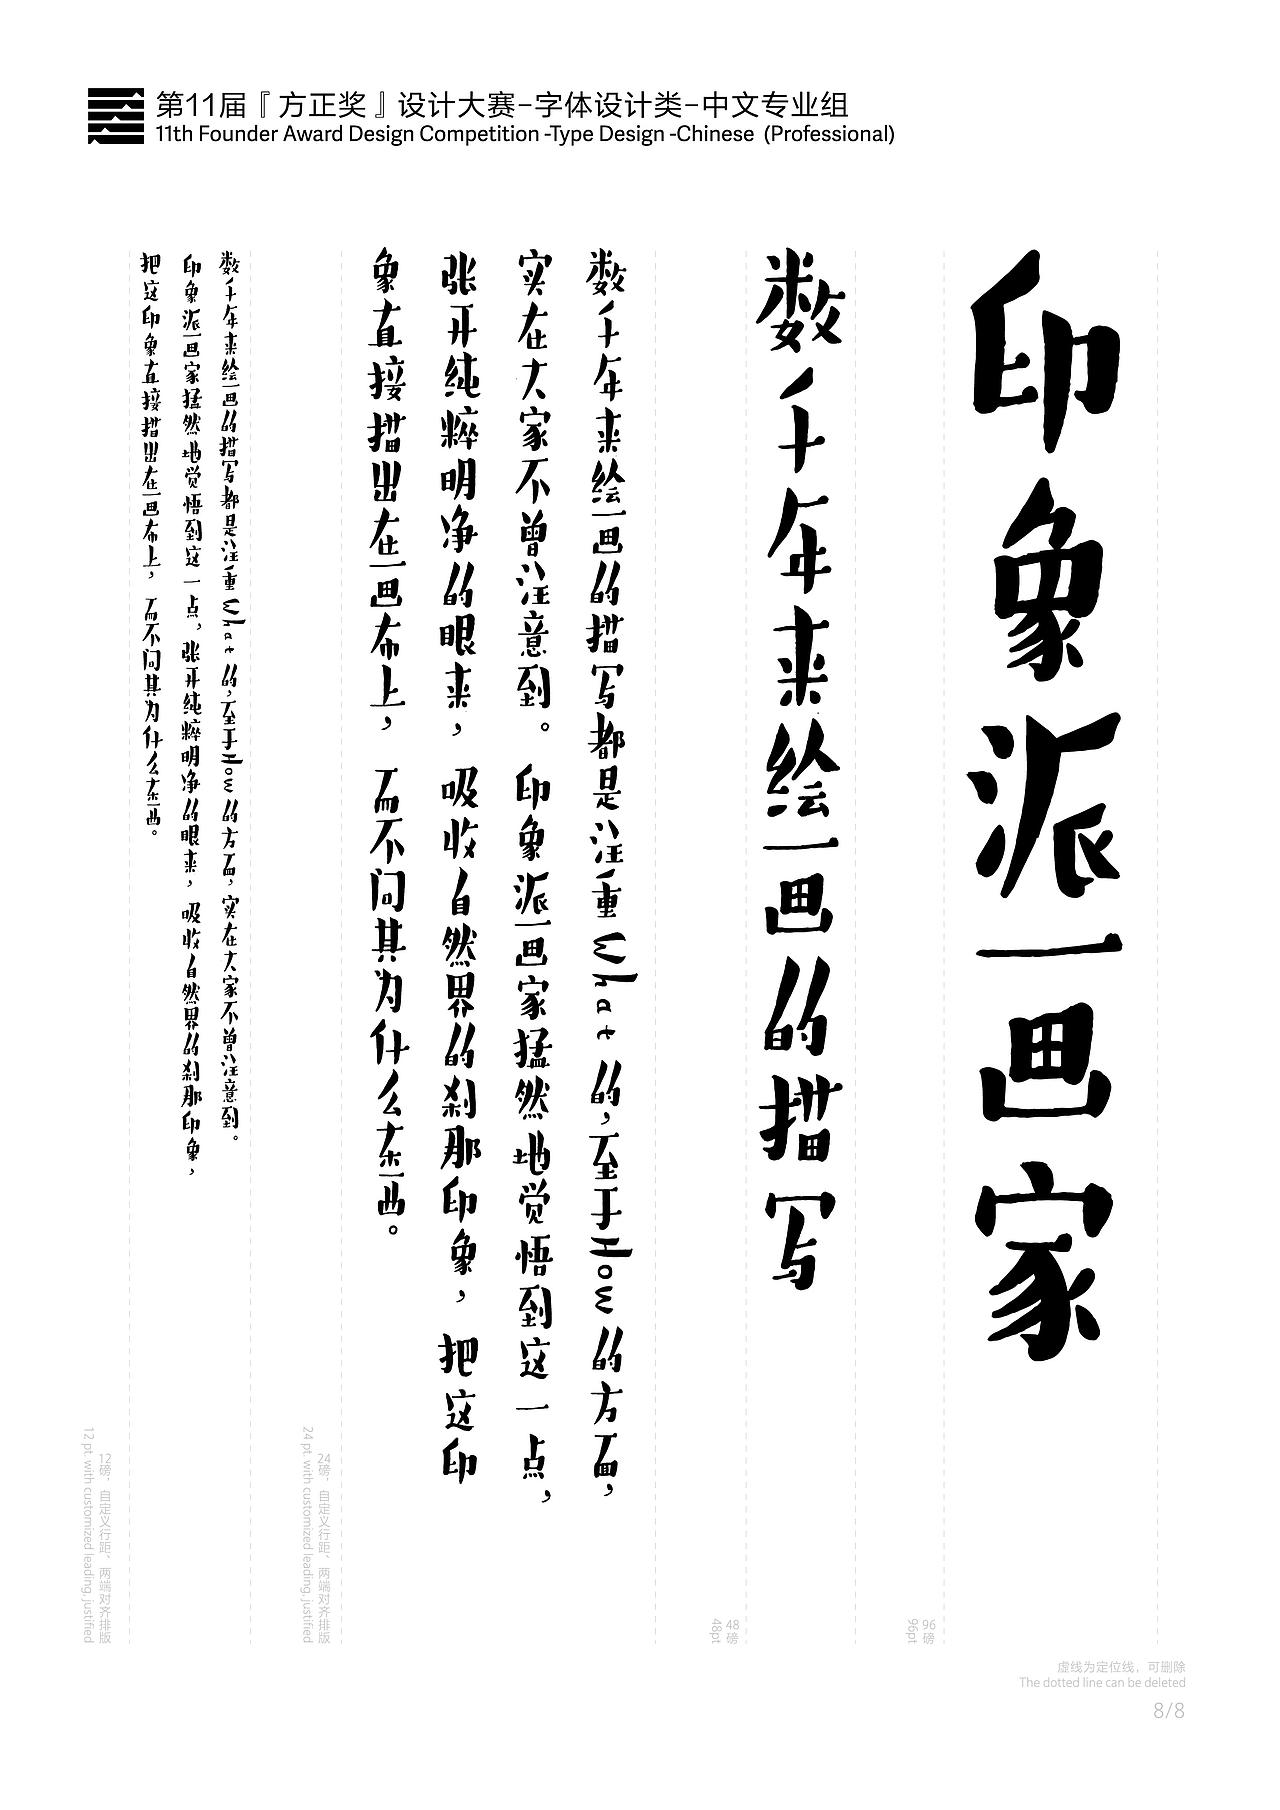 第11届『方正奖』设计大赛-字体设计类-中文专业组
11th Founder Award Design Competition -Type Design -Chinese (Professional)
印象派画家
数千年来绘画的描写
数千年来绘画的描写都是注重What的，至于How的方面，
实在大家不曾注意到。印象派画家猛然地觉悟到这一点，
张开纯粹明净的眼来，吸收自然界的刹那印象，把这印
象直接描出在画布上，而不问其为什么东西。
数千年来绘画的描写都是注重What的，至于How的方面，实在大家不曾注意到。
印象派画家猛然地觉悟到这一点，张开纯粹明净的眼来，吸收自然界的刹那印象，
把这印象直接描出在画布上，而不问其为什么东西。
96磅
96pt
48磅
48pt
24磅，自定义行距、两端对齐排版
24 pt. with customized leading, justified
12磅，自定义行距、两端对齐排版
12 pt. with customized leading, justified
虚线为定位线，可删除
The dotted line can be deleted
8/8